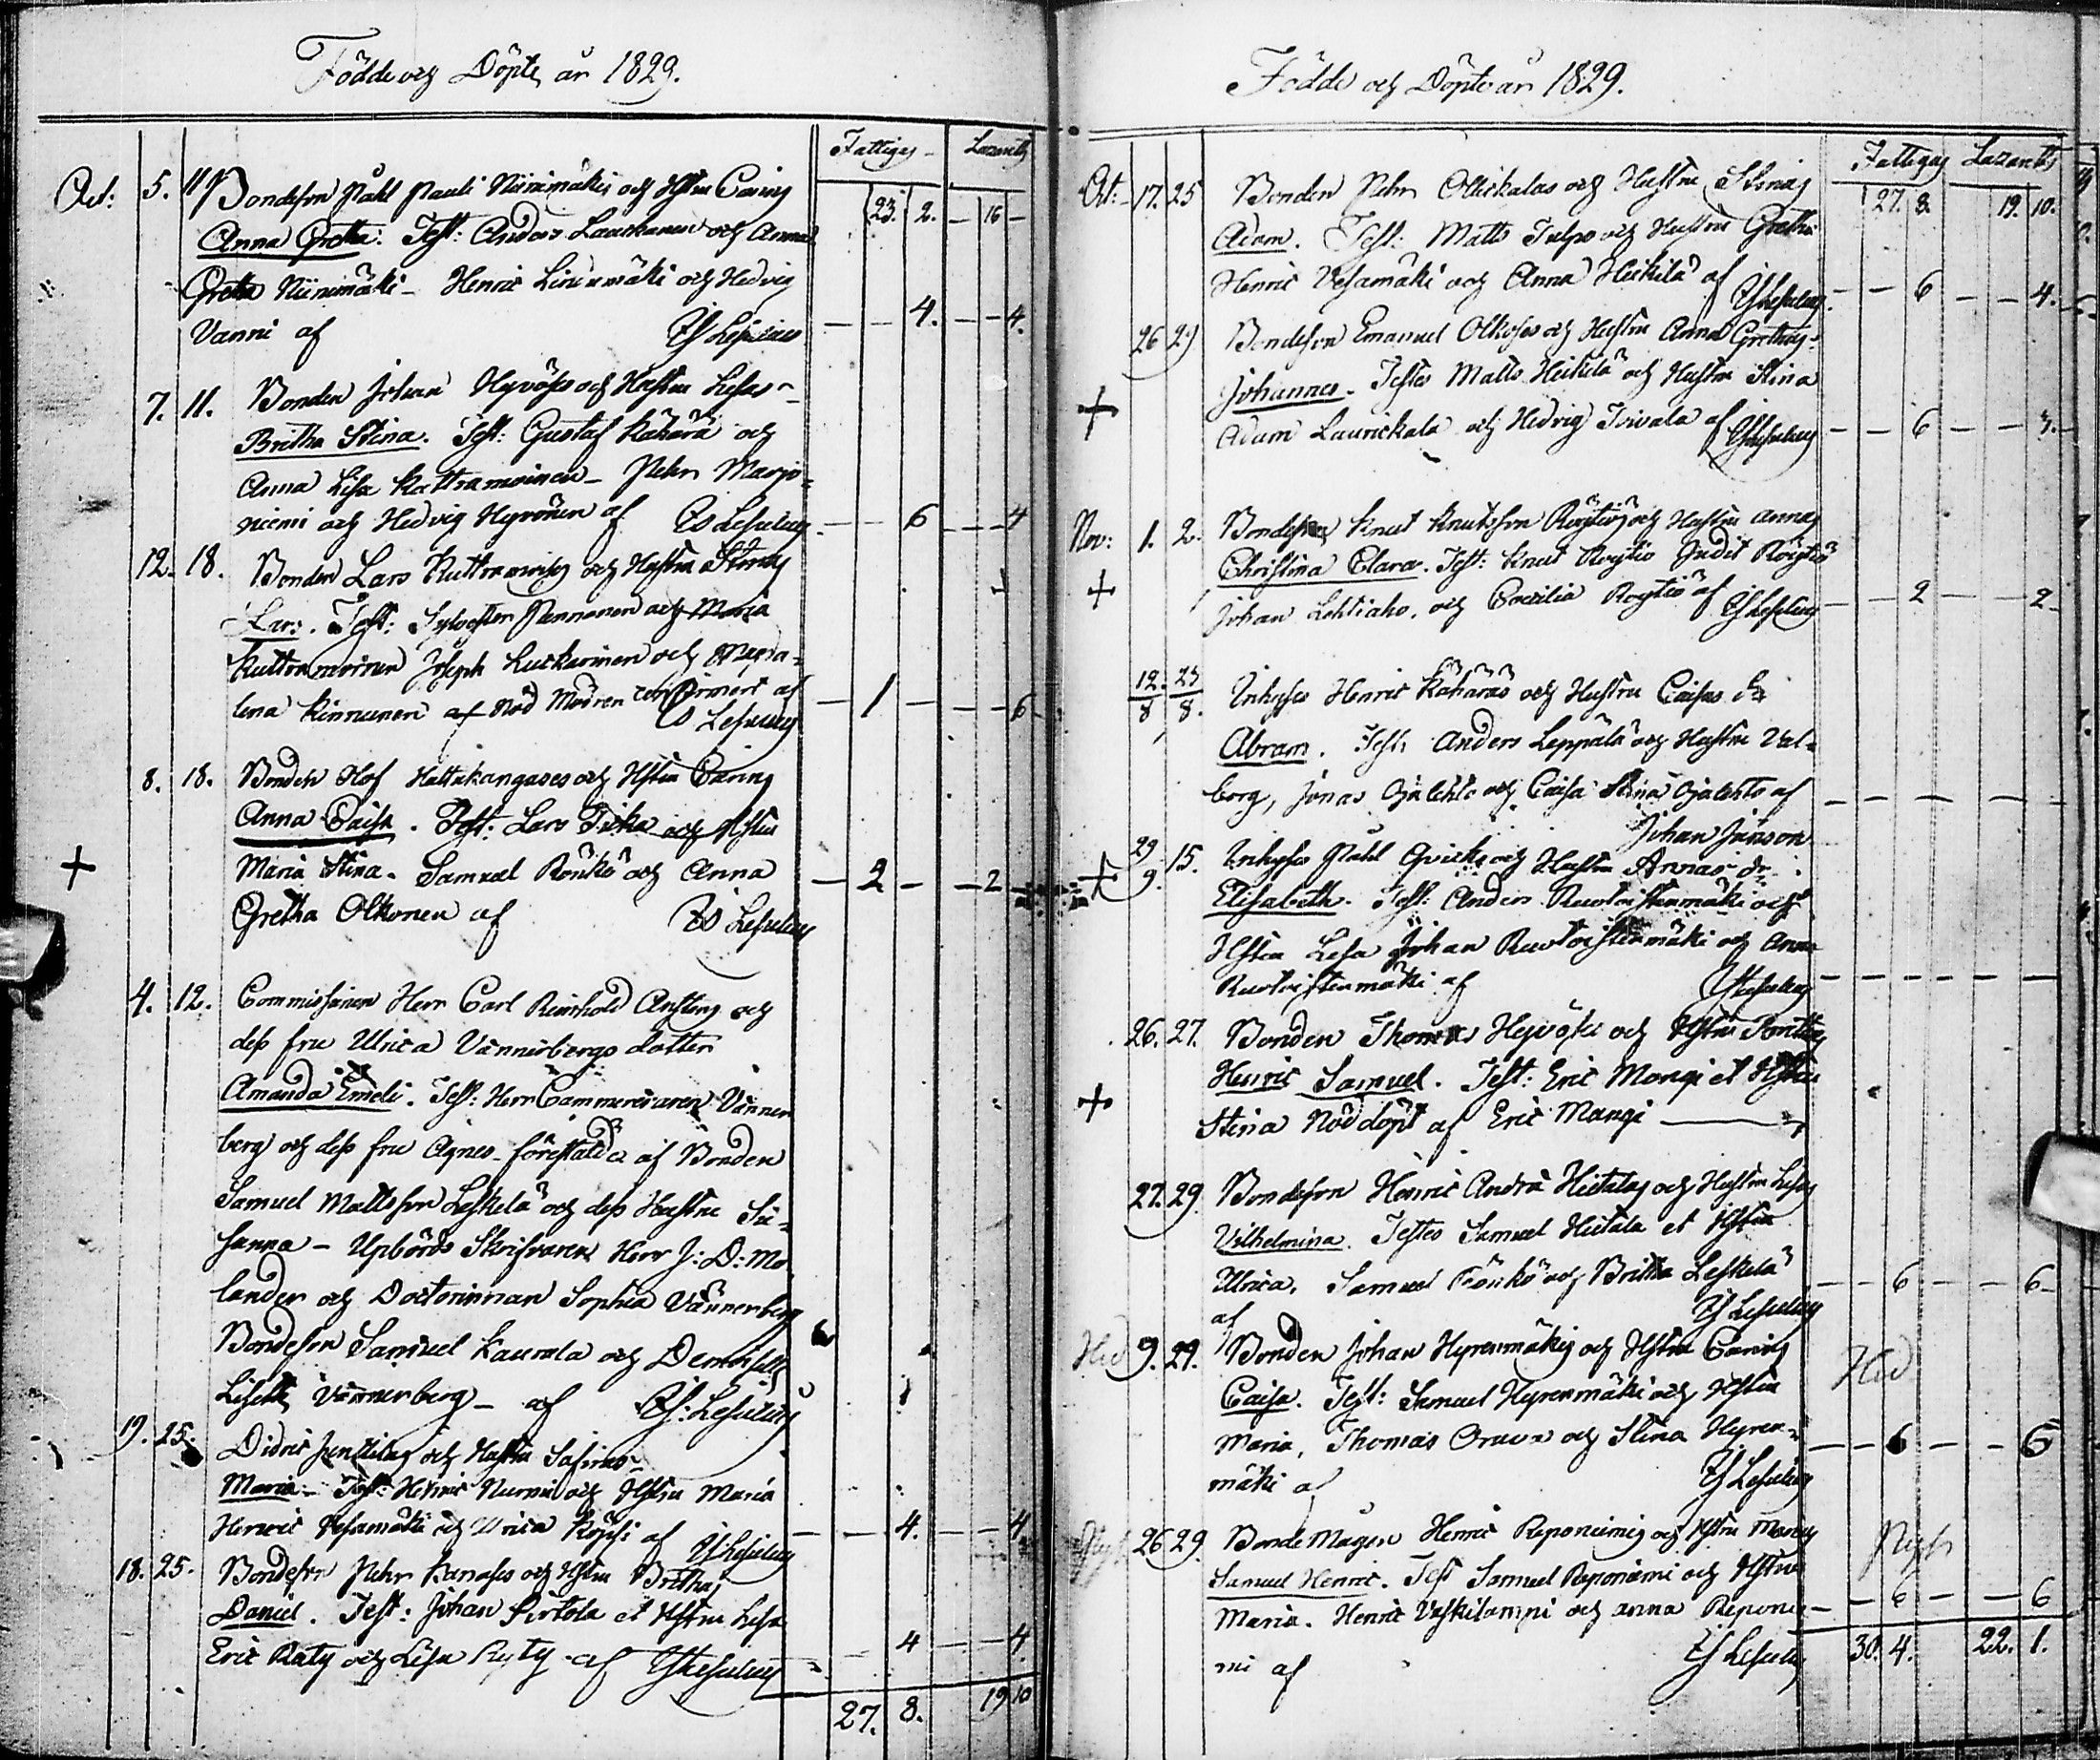 Födde och Döpte år 1829.
Fattigas Lazaretts
Oct: 5. 11 Bondeson Påhl Pauli Niinimäkis och Hstru Carins
Anna Gretha. Test: Anders Laurkanen och Anna 23. 2. 16
Gretha Niinimäki Henric Liinamäki och Hedvig
Vanni af 4. 4.
7. 11. Bonden Johan Hyvöses och Hustru Lisas
Britha Stina. Test: Gustaf Kähärä och
Anna Lisa Kuttramoinen Pehr Marjo=
niemi och Hedvig Hyvönen af 6 4
12. 18. Bonden Lars Kuttramoises och Hustru Stinas
Lars. Test: Sylvester Pannanen och Maria
Kuttramoinen Joseph Luckarinen och
lena Kinnunen af Nöd Modren af 1 6
8. 18. Bonden Hattukangases och Hstru Carins
Anna Caisa. Test: Lars Tiika och Hstru
Maria Stina. Samuel Rönkö och Anna 2 2
Gretha Olkonen af
4. 12. Commissarien Herr Carl Reinhold och
dess fru Ulrica Vännerbergs dotter
Amanda Emeli. Test: Herr Cammereraren Vänner
berg och dess fru Agnes förestälda af Bonden
Samuel Mattsson Leskelä och dess Hustru Su=
sanna Upbörds Skrifvaren Herr J: D: Mo
lander och Doctorinnan Sophia Vännerberg
Bondeson Samuel Kaurala och Demoiselle
Lisette Vännerberg af
19. 25. Didric Junttilas och Hustru
Maria Test: Henric Nurmi och Hstru Maria
Henric Vesamäki och Ulrica Köpsi af 4. 4.
18. 25. Bondeson Pehr Kanases och Hstru Brithas
Daniel. Test: Johan Pirtola et Hstru Lisa
Eric Räty och Lisa Ryty af 4 4
27. 8. 19 10
Födde och Döpte år 1829.
Fattigas Lazaretts
Oct: 17. 25 Bonden Pehr Ollickalas och Hustru Stinas 27. 8. 19. 10.
Adam. Test: Matts Tulpo och Hustru Gretha
Henric Vesamäki och Anna Heikilä af 6 4.
26 29 Bondeson Emanuel Olkoses och Hustru Anna Grethas
Johannes. Testes Matts Heikilä och Hustru Stina
Adam Laurickala och Hedvig Toivala af 6 3.
Nov: 1. 2. Bondeson Knut Knutsson Röytiös och Hustru Annas
Christina Clara. Test: Knut Röytiö Judit Röytiö
Johan Lehtiaho. och Cæcilia Röytiö af 2 2
12. 23 Inhyses Henric Kähäräs och Hustru Caisas dr
8 8. Abram. Test: Anders Leppälä och Hustru Val=
borg, Jonas Ojalehto och Caisa Stina Ojalehto af
Johan Jünson
29 15. Inhyses Påhl och Hustru Annas dr
9. Elisabeth. Test: Anders Ruotoistenmäki och
Hstru Lisa Johan Ruotoistenmäki och Anna
Ruotoistenmäki af
26. 27. Bonden Thomas Hyvöses och Hstru Brithas
Henric Samuel. Test: Eric Mangi et Hstru
Stina Nöddöpt af Eric Mangi
27. 29. Bondeson Henric Andrä Hietalas och Hustru Lisas
Vilhelmina. Testes Samuel Hietala et Hstru
Ulrica. Samuel Rönkö och Britha Leskelä 6 6
af
9. 29. Bonden Johan Hyrenmäkis och Hstru Carins
Caisa. Test: Samuel Hyrenmäki och Hstru
Maria, Thomas Orava och Stina Hyren= 6 6
mäki af
26 29. Bonde Mågen Henric Reponiemis och Hstru Marias
Samuel Henric. Test Samuel Reponiemi och Hstru
Maria. Henric Vaskilampi och Anna Reponie 6 6
mi af 30. 4. 22. 1.